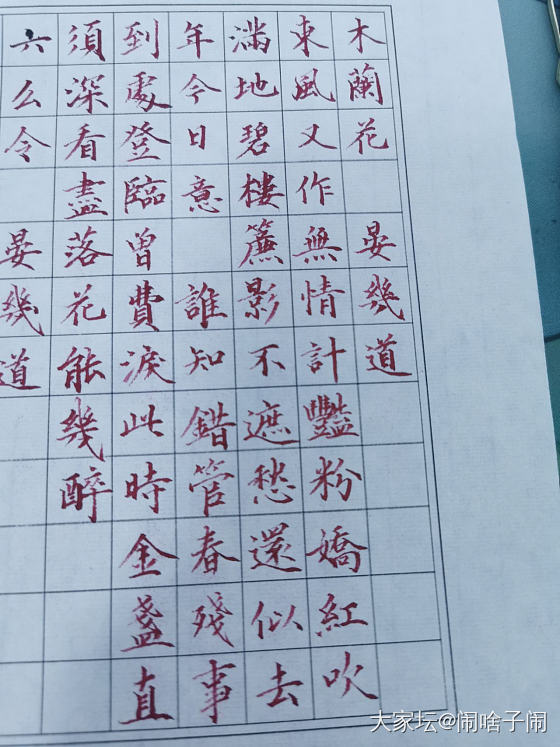 木蘭花 晏幾道
東風又作無情計豔粉嬌紅吹
滿地碧樓簾影不遮愁還似去
年今日意 誰知錯管春殘事
到處登臨曾費淚此時金盞直
須深看盡落花能幾醉
六么令 晏幾道
大家坛@闹啥子闹